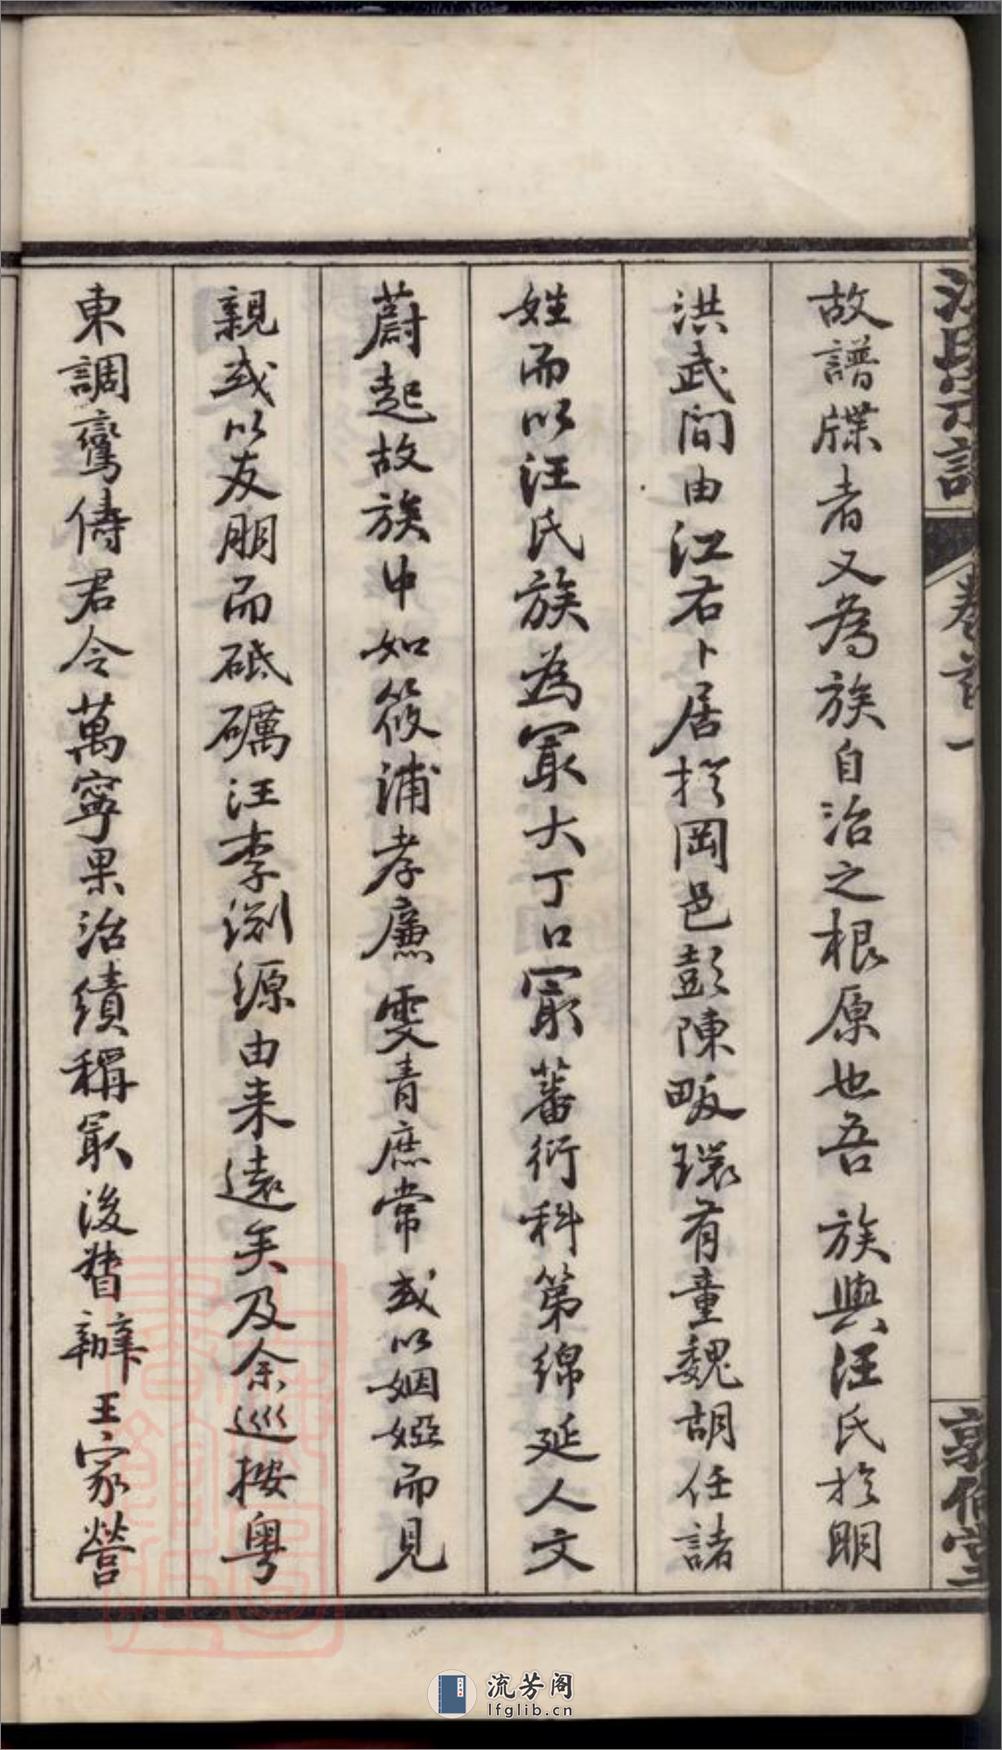 故譜牒者又為族自治之根原也吾族與汪氏於明
洪武間由江右卜居於岡邑彭陳畈環有童魏胡任諸
姓而以汪氏族為冣大丁口冣蕃衍科第綿延人文
蔚起故族中如筱浦孝廉雯青庶常或以姻婭而見
親或以友朋而砥礪汪李淵源由来遠矣及余巡按粵
東調鸞儔君令萬寧果治績稱冣後督辦王家營
卷首 一
敦倫堂
流芳阁
lfglib.cn